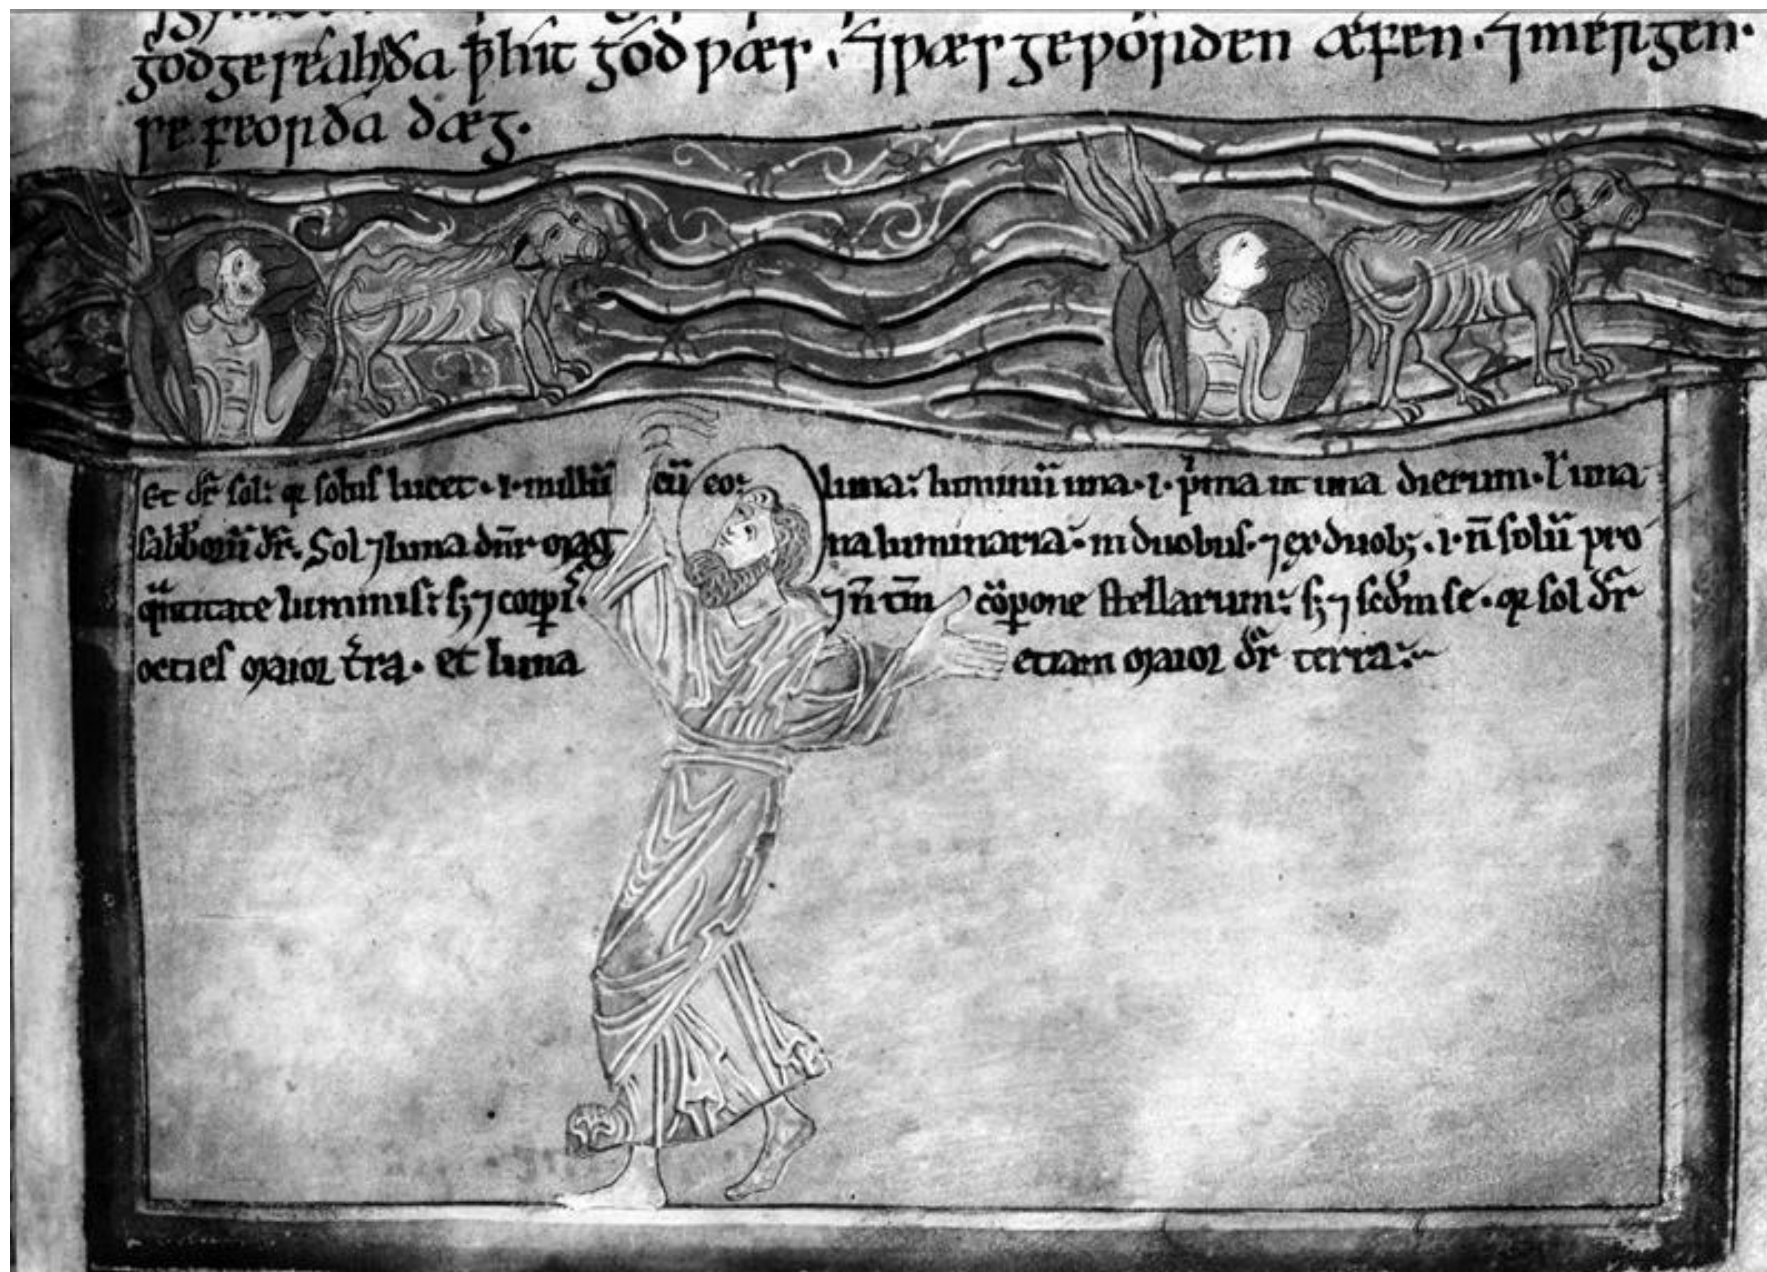 god geseah ða ꝥ hit god wæs . ⁊ wæs geworden æfen . ⁊ mergen.
se feorða dæg.
Et dr̄ sol: qꝛ solus lucet .i. nullū cū eo: luna: luminū una .i. p̄ma ut una dierum. lˈ una
sabb̄orū dr̄. Sol ⁊ luna dn̄r mag na luminaria: in duobus. ⁊ ex duob; .i. n̄ solū pro
q̄ntitate luminis: s; ⁊ corꝑis. ⁊ n̄ tm̄ cōꝑone stellarum: s; ⁊ scd̄m se. qꝛ sol dr̄
octies maior t̄ra. et luna etiam maior dr̄ terra:~